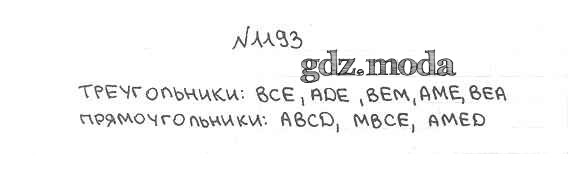 N1193
gdz.moda
ТРЕУГОЛЬНИКИ: BCE, ADE, BEM, AME, BEA
ПРЯМОУГОЛЬНИКИ: ABCD, MBCE, AMED